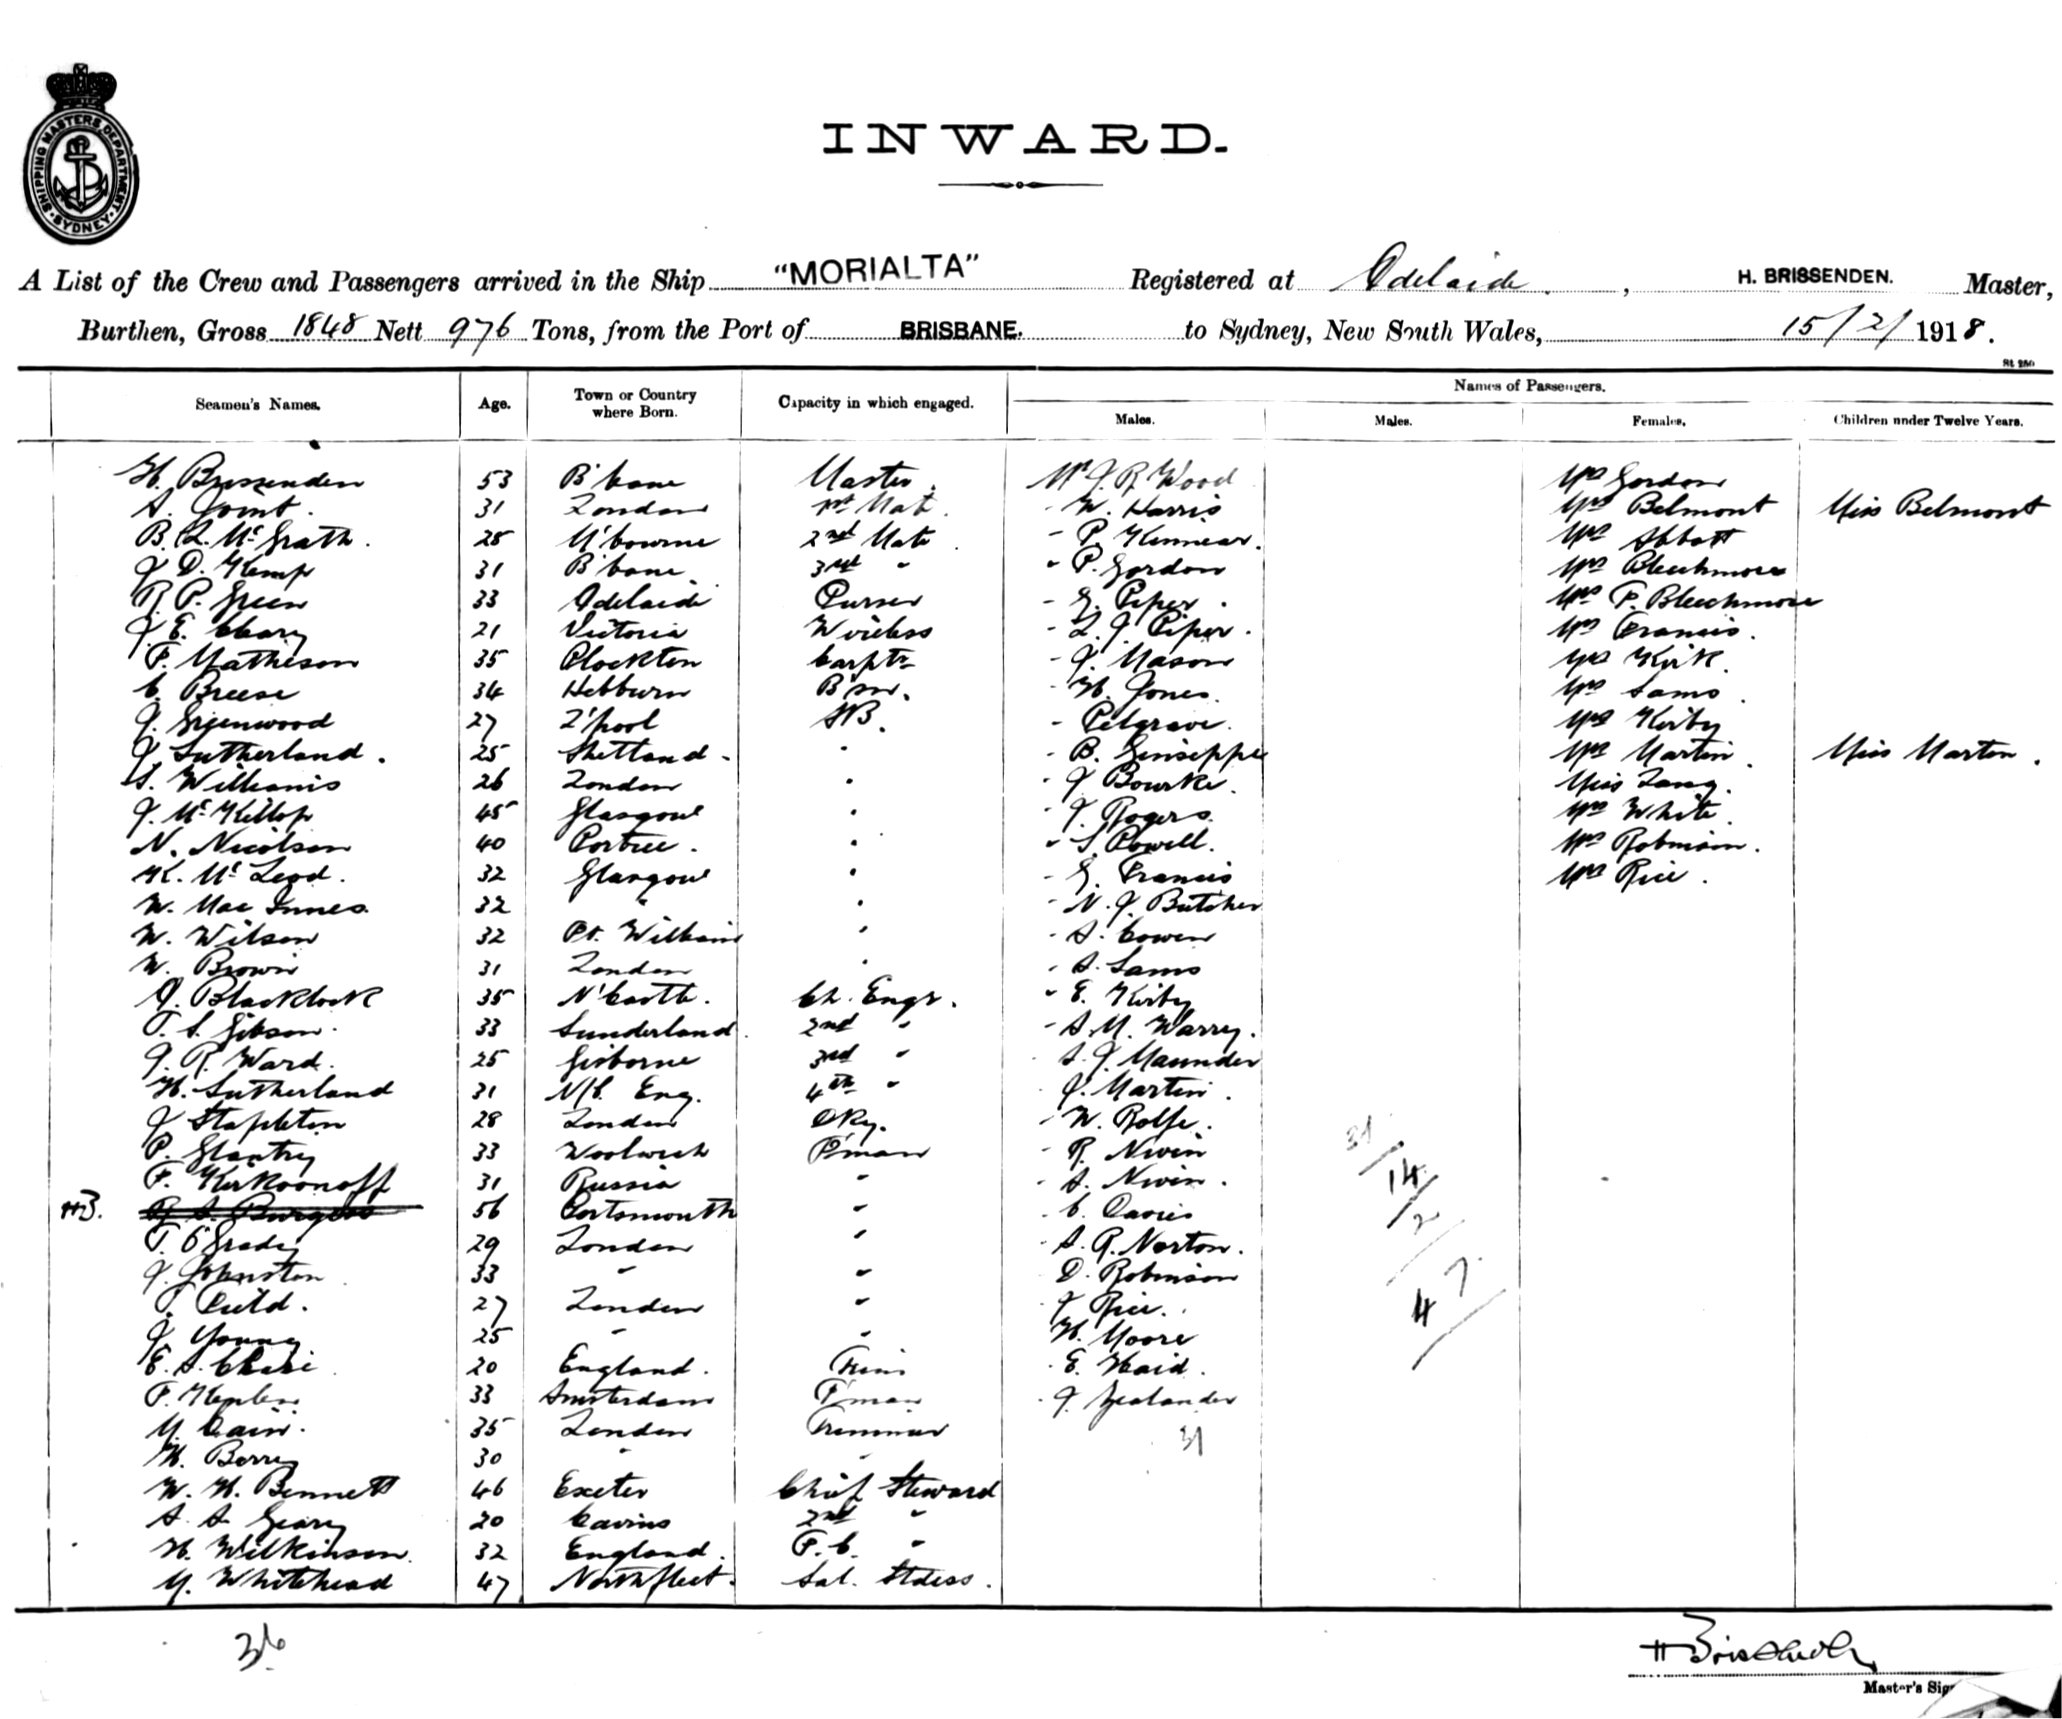 SHIPPING MASTERS DEPARTMENT · SYDNEY ·
INWARD.
A List of the Crew and Passengers arrived in the Ship "MORIALTA" Registered at Adelaide, H. BRISSENDEN. Master,
Burthen, Gross 1848 Nett 976 Tons, from the Port of BRISBANE. to Sydney, New South Wales, 15/2/1918.
Names of Passengers.
Seamen's Names. Age. Town or Country where Born. Capacity in which engaged. Males. Males. Females. Children under Twelve Years.
H. Brissenden 53 B'bane Master. Mr J. R. Wood Mrs Gordon
A. Joint. 31 London 1st Mate - W. Harris Mrs Belmont Miss Belmont
B. L. McGrath. 28 M'bourne 2nd Mate - P. Kinnear. Mrs Abbott
J. D. Kemp 31 B'bane 3rd " - P. Gordon Mrs Bleechmore
R. P. Green 33 Adelaide Purser - G. Piper. Mrs F. Bleechmore
J. E. Cleary 21 Victoria Wireless - L. J. Piper. Mrs Francis.
F. Matheson 35 Plockton Carptr - J. Mason Mrs Kirk.
C. Breese 34 Hebburn B'sn. - H. Jones. Mrs Sams
J. Greenwood 27 L'pool AB. - Pelgrave. Mrs Kirby
J. Sutherland. 25 Shetland - B. Ginseppie Mrs Martin Miss Marton.
S. Williams 26 London - J. Bourke. Miss Lang.
J. McKillop 45 Glasgow - J. Rogers. Mrs White.
N. Nicolson 40 Portree. - S. Powell. Mrs Robinson.
K. McLeod. 32 Glasgow - G. Francis Mrs Rice.
W. MacInnes 32 " - N. J. Butcher
W. Wilson 32 Pt. William - A. Cowen
W. Brown 31 London - A. Sams
J. Blacklock 35 N'Castle. Ch. Engr. - E. Kirby
T. S. Gibson. 33 Sunderland 2nd " - A. M. Warry.
J. R. Ward. 25 Gisborne 3rd " A. J. Maunder
H. Sutherland 31 N/C. Eng. 4th " J. Martin.
J. Stapleton 28 London Dky. - W. Rolfe.
P. Glantry 33 Woolwich F'man - R. Nivin
F. Kirkoonoff 31 Russia " - A. Nivin.
HB. R. A. Burgess 56 Portsmouth " - C. Davies
T. O'Grady 29 London " - A. R. Norton.
J. Johnston 33 " " D. Robinson
27 London " - J. Rice.
J. Young 25 " " H. Moore
E. A. Chase 20 England. Trim - E. Haid.
F. 33 Amsterdam F'man - J. Zealander
M. Cain. 35 London Trimmer
H. Berry 30 " "
W. H. Bennett 46 Exeter Chief Steward
A. A. Geary 20 Cairns 2nd "
H. Wilkinson. 32 England. F.C. "
M. Whitehead 47 Northfleet. Sal. Stdess.
31
31
14
2
47
36
H Brissenden